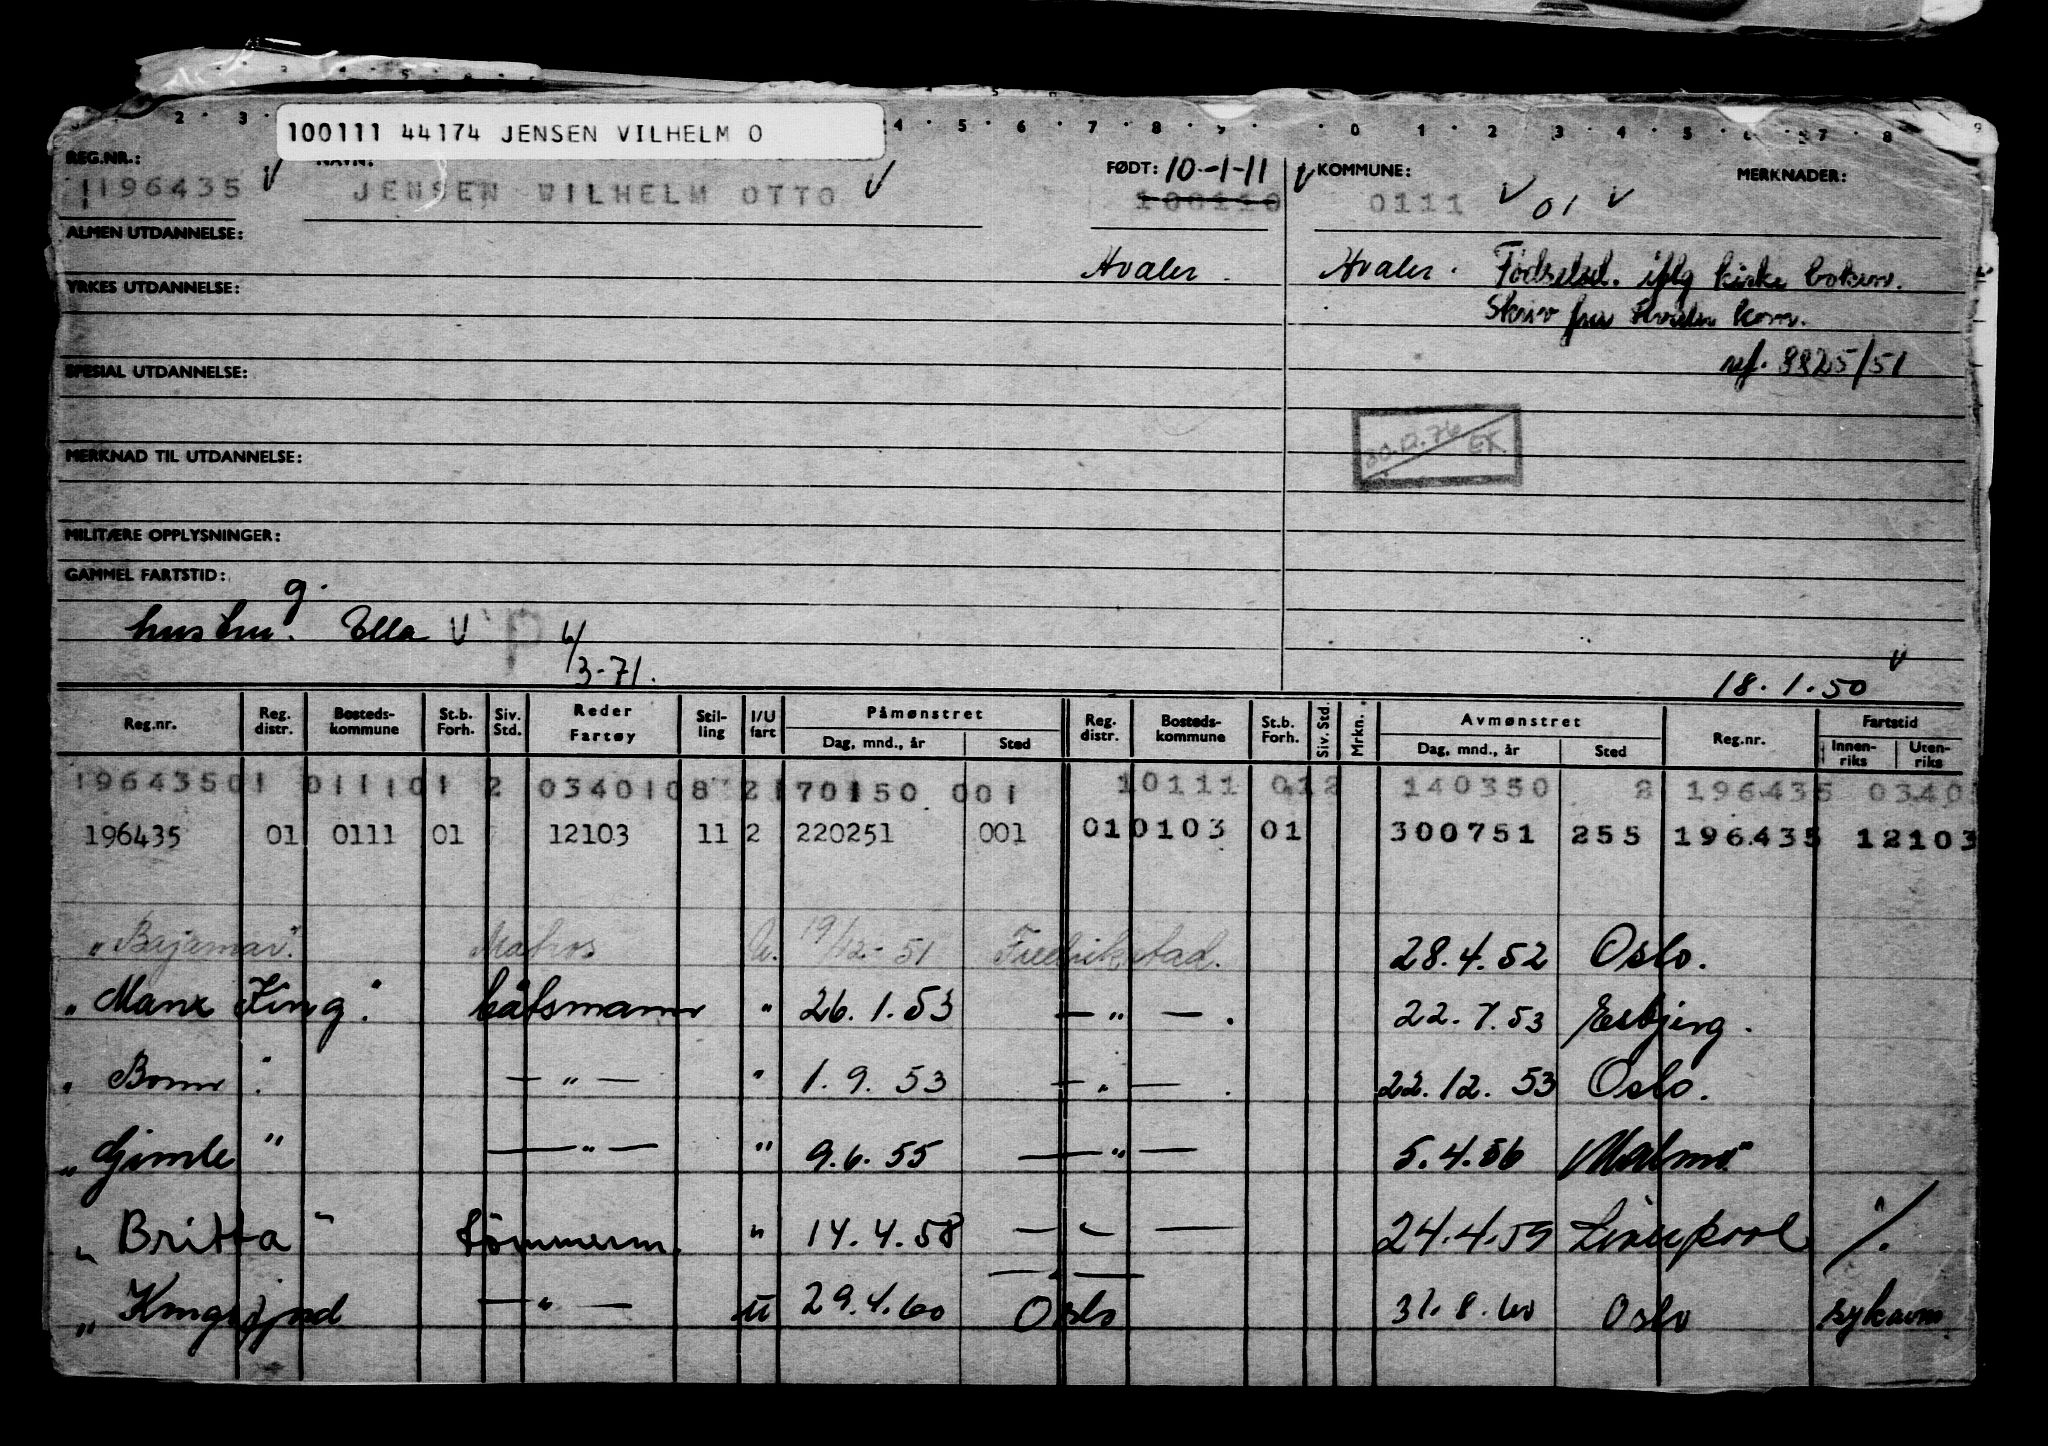 100111 44174 JENSEN VILHELM O
REG.NR.: NAVN: FØDT: 10-1-11 KOMMUNE: MERKNADER:
196435 JENSEN WILHELM OTTO 100110 0111 01
ALMEN UTDANNELSE:
Hvaler. Hvaler. Fødselsd. iflg kirke boken.
YRKES UTDANNELSE:
Skriv fra Hvaler kom.
ref. 9825/51
SPESIAL UTDANNELSE:
20.12.76 EK
MERKNAD TIL UTDANNELSE:
MILITÆRE OPPLYSNINGER:
GAMMEL FARTSTID:
g.
hustru. Ella 6/3-71.
18.1.50
Reg.nr. Reg. distr. Bosteds-kommune St.b. Forh. Siv. Std. Reder Fartøy Stil-ling I/U fart Påmønstret Dag, mnd., år Sted Reg. distr. Bosteds-kommune St.b. Forh. Siv. Std. Mrkn. Avmønstret Dag, mnd., år Sted Reg.nr. Fartstid Innen-riks Uten-riks
19643501 011101 2 0340108 2170150 001 10111 012 140350 2 196435 0340
196435 01 0111 01 12103 11 2 220251 001 010103 01 300751 255 196435 12103
"Bajamar". Matros U. 19/12-51 Fredrikstad. 28.4.52 Oslo.
"Manx King". båtsmann " 26.1.53 — " — . 22.7.53 Esbjerg.
" Bomr ". — " — " 1.9.53 — " — . 22.12.53 Oslo.
"Gimle" — " — " 9.6.55 — " — 5.4.56 Malmø
"Britta" tømmerm. " 14.4.58 — " — 24.4.59 Liverpool %.
"Kingsfjord — " — U 29.4.60 Oslo 31.8.60 Oslo sykavm